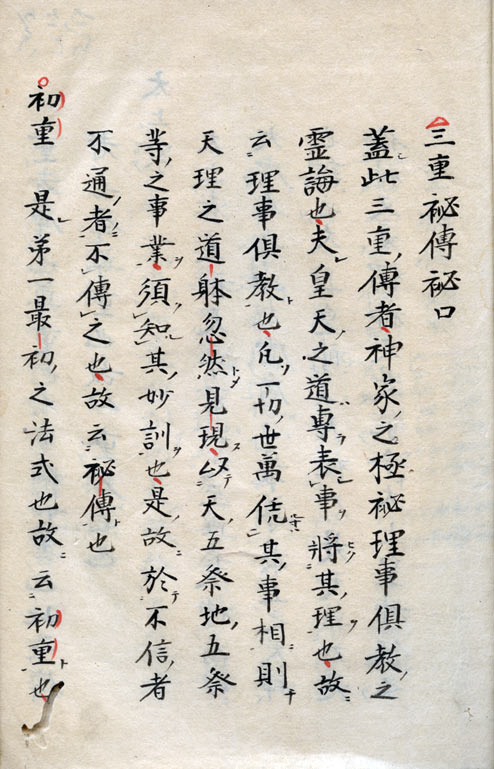 三重祕傳祕口
蓋此三重傳者神家之極祕理事俱教之
霊誨也夫皇天之道專表事將其理也故
云理事俱教也凡一切世萬凭其事相則
天理之道躰忽然見現以天五祭地五祭
等之事業須知其妙訓也是故於不信者
不通者不傳之也故云祕傳也
初重 是第一最初之法式也故云初重也